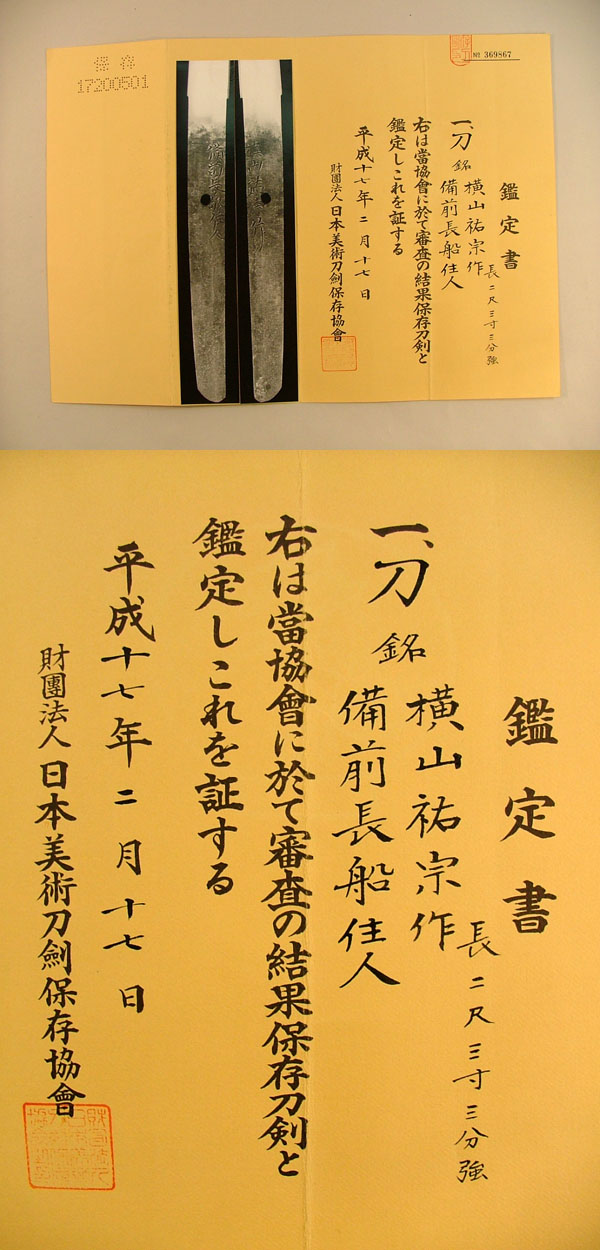 保存
17200501
№ 369867
鑑定書
一、刀 銘 横山祐宗作
備前長船住人
長二尺三寸三分強
右は當協會に於て審査の結果保存刀剣と
鑑定しこれを証する
平成十七年二月十七日
財團法人日本美術刀劍保存協會
鑑定書
一、刀
銘 横山祐宗作
備前長船住人
長二尺三寸三分強
右は當協會に於て審査の結果保存刀剣と
鑑定しこれを証する
平成十七年二月十七日
財團法人日本美術刀劍保存協會